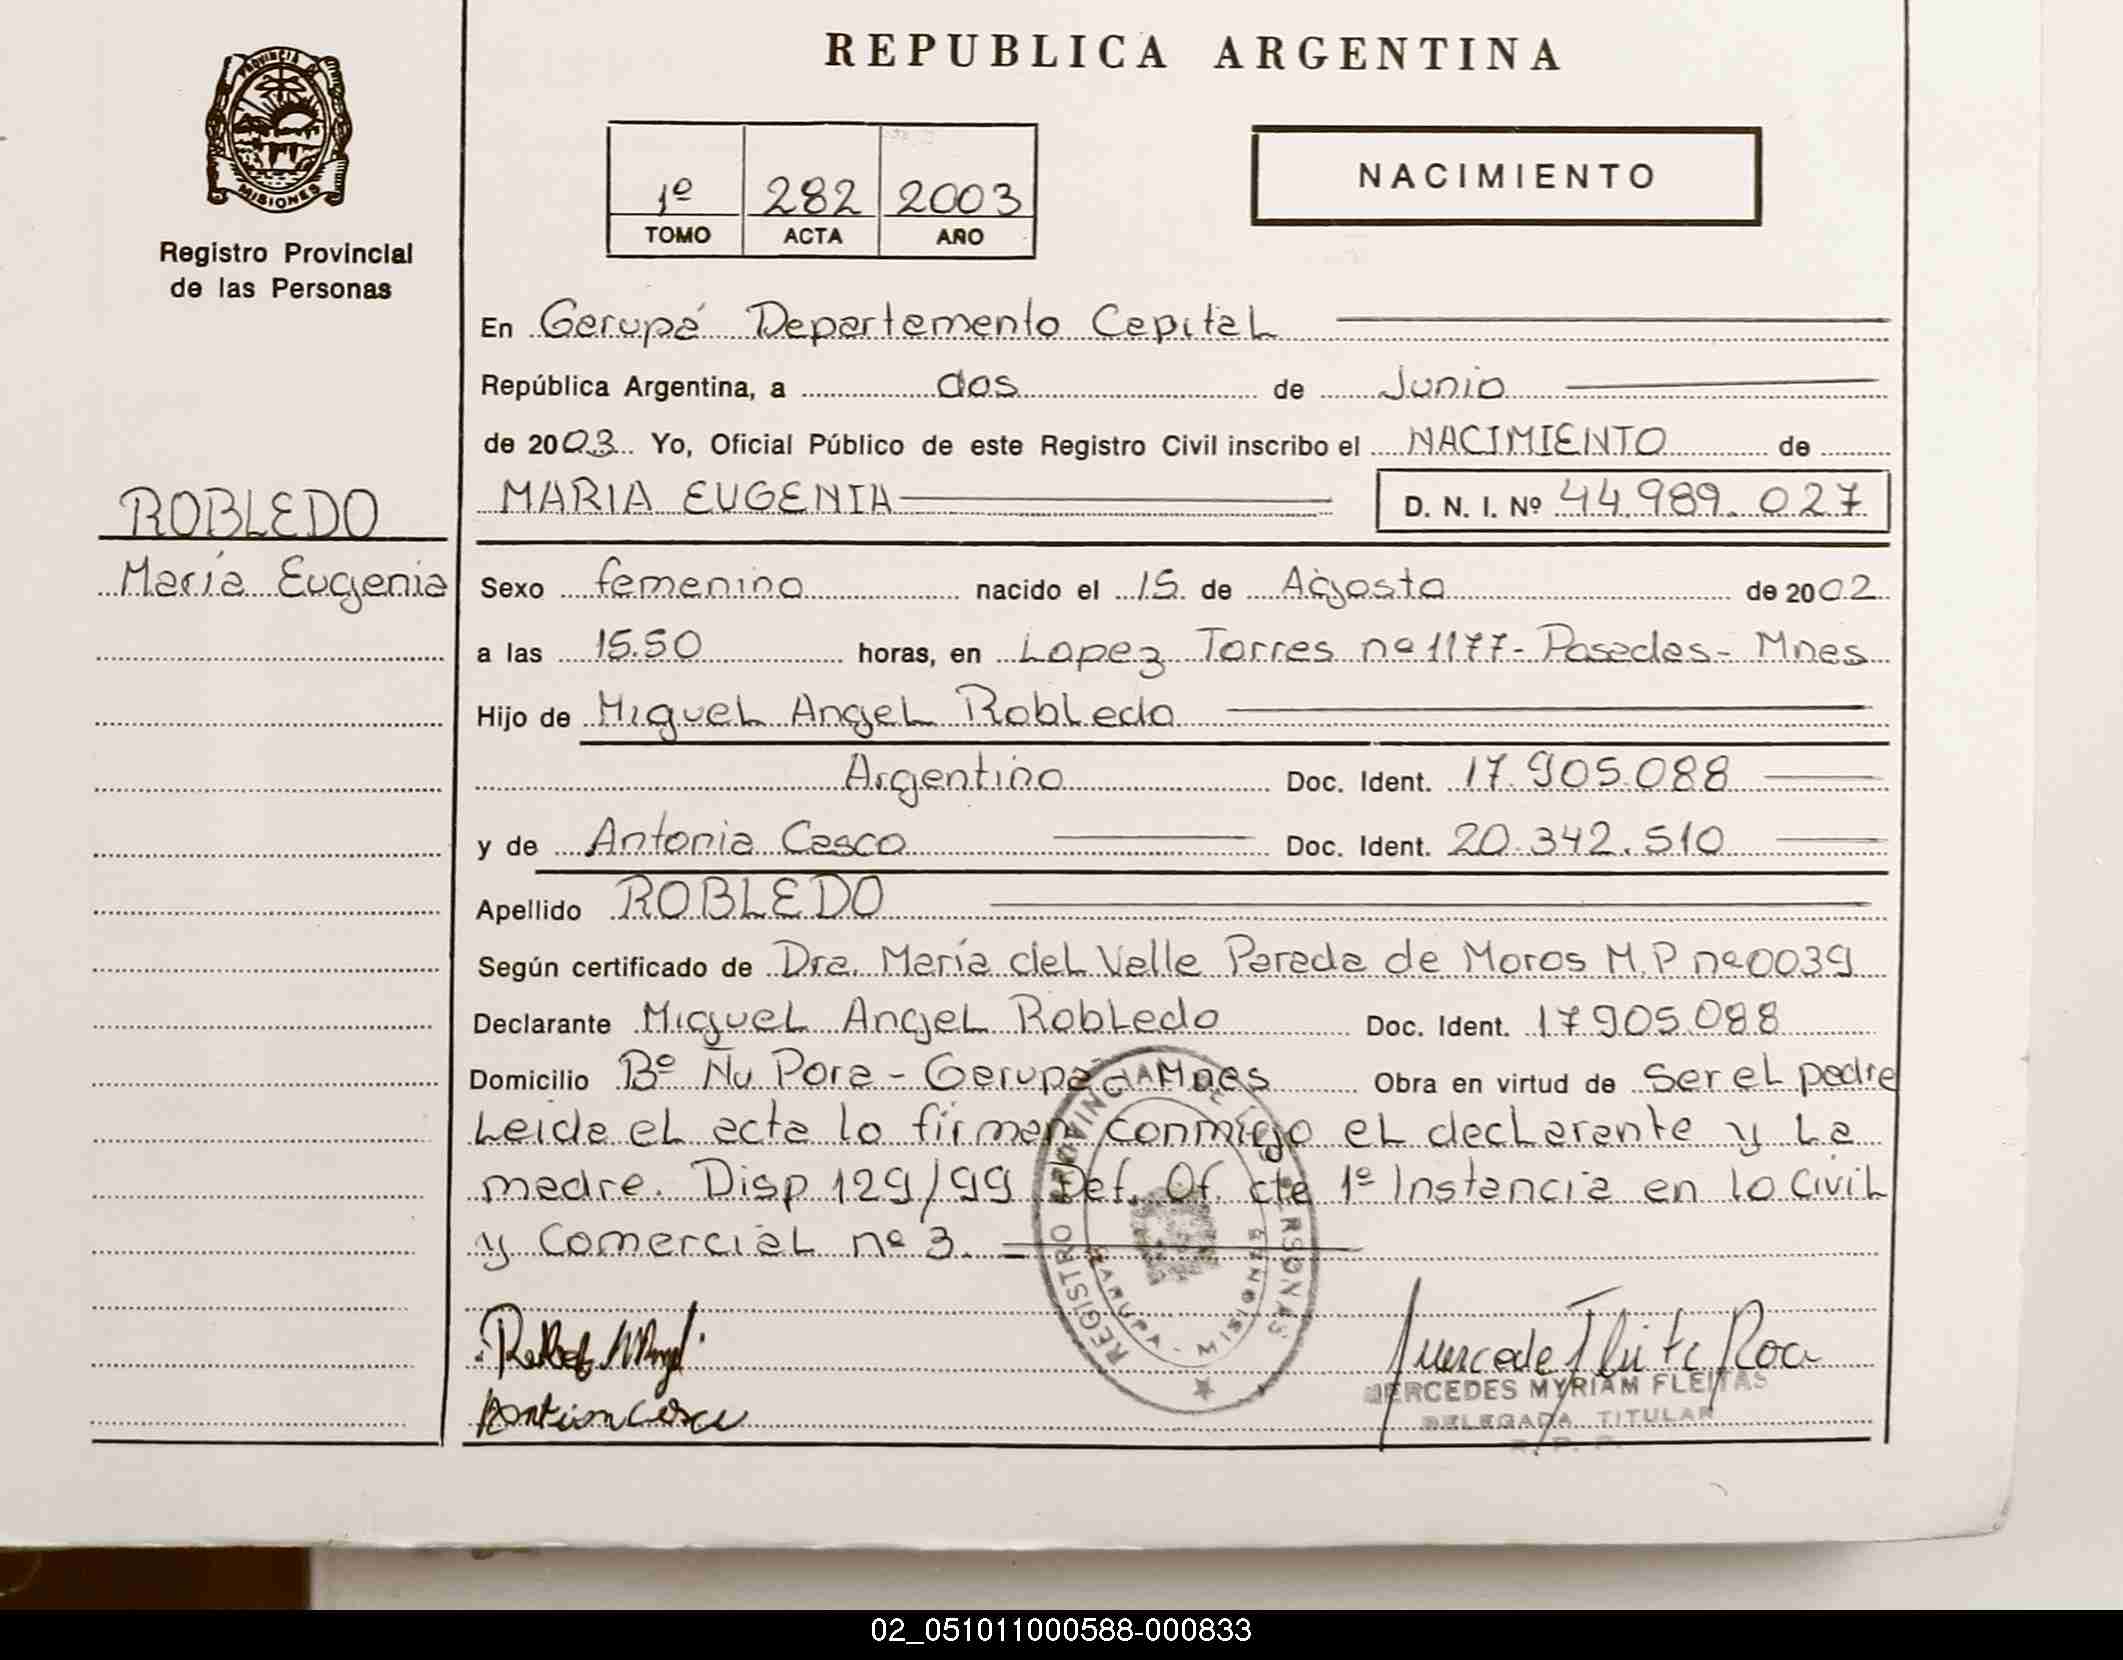 REPUBLICA ARGENTINA
PROVINCIA DE
MISIONES
Registro Provincial
de las Personas
1º 282 2003
TOMO ACTA AÑO
NACIMIENTO
En Garupá Departamento Capital
República Argentina, a dos de Junio
de 2003 Yo, Oficial Público de este Registro Civil inscribo el NACIMIENTO de
MARIA EUGENIA D. N. I. Nº 44.989.027
ROBLEDO
María Eugenia
Sexo femenino nacido el 15 de Agosto de 2002
a las 15.50 horas, en Lopez Torres nº 1177 - Posadas - Mnes
Hijo de Miguel Angel Robledo
Argentino Doc. Ident. 17.905.088
y de Antonia Casco Doc. Ident. 20.342.510
Apellido ROBLEDO
Según certificado de Dra. María del Valle Parada de Moros M.P nº 0039
Declarante Miguel Angel Robledo Doc. Ident. 17905.088
Domicilio Bº Ñu Pora - Garupá Mnes Obra en virtud de ser el padre
Leida el acta lo firman conmigo el declarante y la
madre. Disp 129/99 Def. Of. cte 1º Instancia en lo Civil
y Comercial nº 3.
REGISTRO PROVINCIAL DE LAS PERSONAS
GARUPA - MISIONES
MERCEDES MYRIAM FLEITAS
DELEGADA TITULAR
R. P. P.
02_051011000588-000833